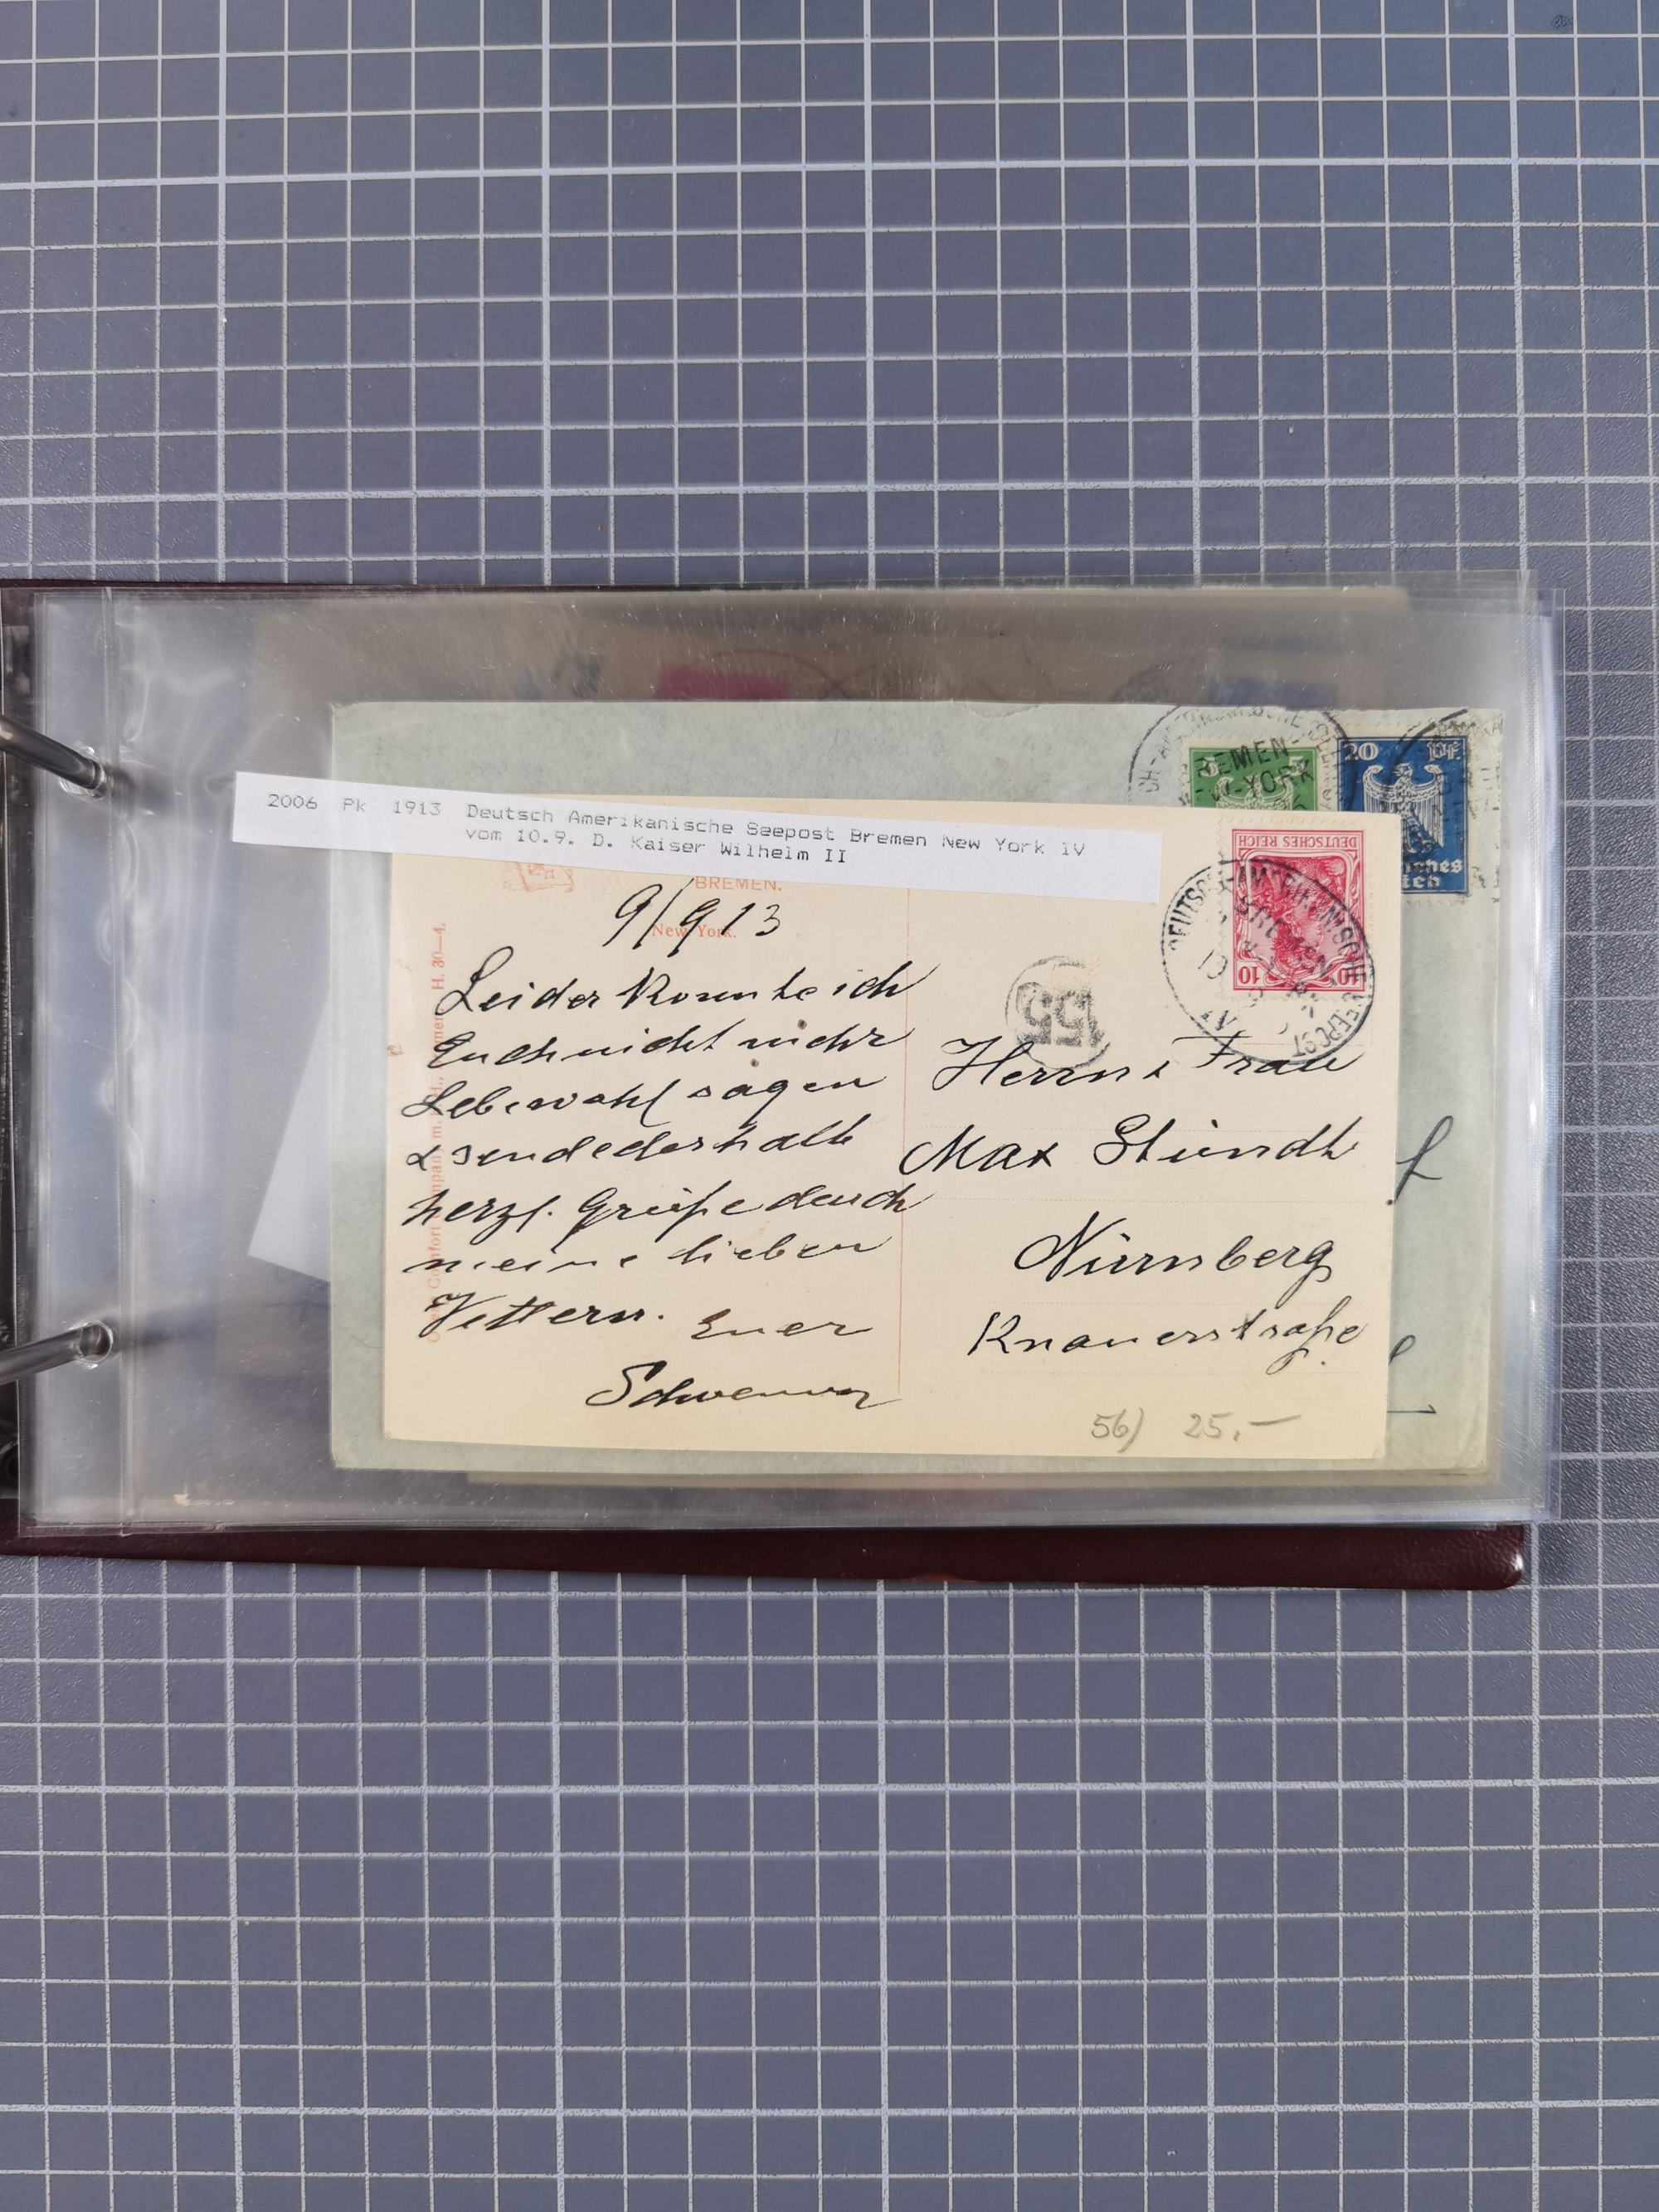 2006 Pk 1913 Deutsch Amerikanische Seepost Bremen New York IV
vom 10.9. D. Kaiser Wilhelm II
BREMEN.
New York.
9/9 13
Leider konnte ich
Euch nicht mehr
Lebewohl sagen
& sende deshalb
herzl. Grüße durch
meine lieben
Vettern. Euer
H. 30—4.
DEUTSCHES REICH
10 10
DEUTSCH-AMERIKANISCHE SEEPOST
BREMEN
IV
55
Herrn & Frau
Max Stündt
Nürnberg
Knauerstraße
56) 25,—
BREMEN-
W-YORK
20 Pf.